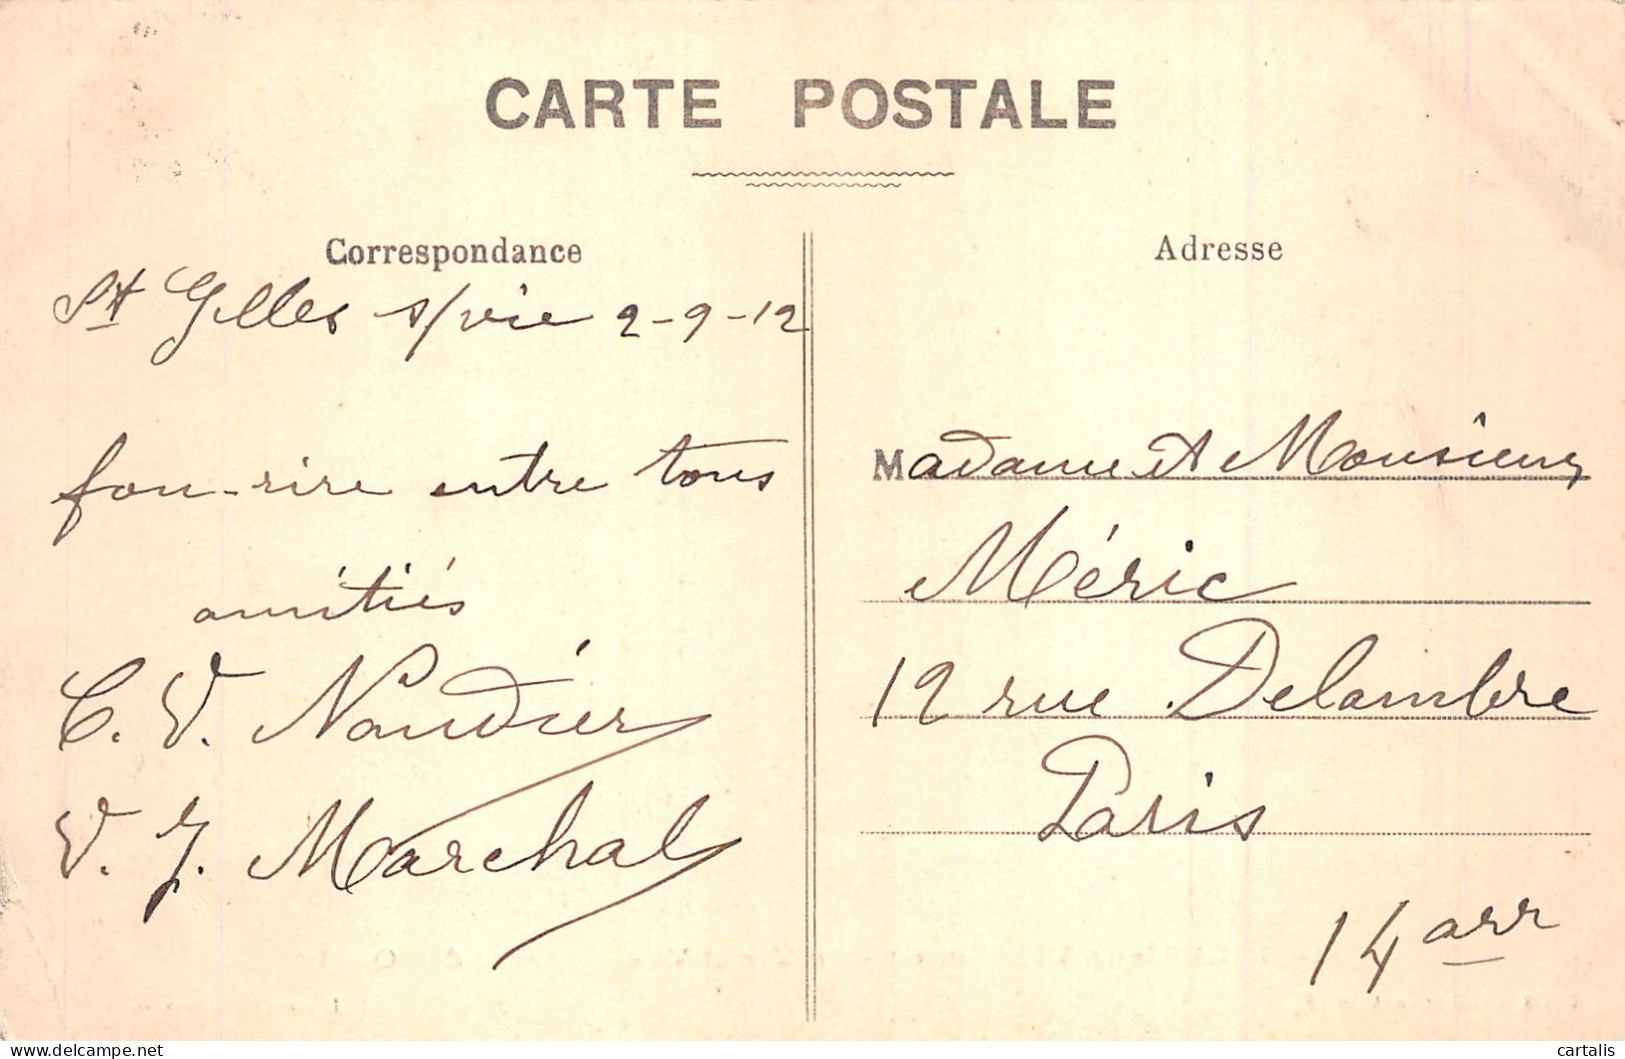 CARTE POSTALE
Correspondance
St Gilles s/vie 2-9-12
fou-rire entre tous
amitiés
C. V. Naudier
V. J. Marchal
Adresse
Madame et Monsieur
Méric
12 rue Delambre
Paris
14 arr
cartalis